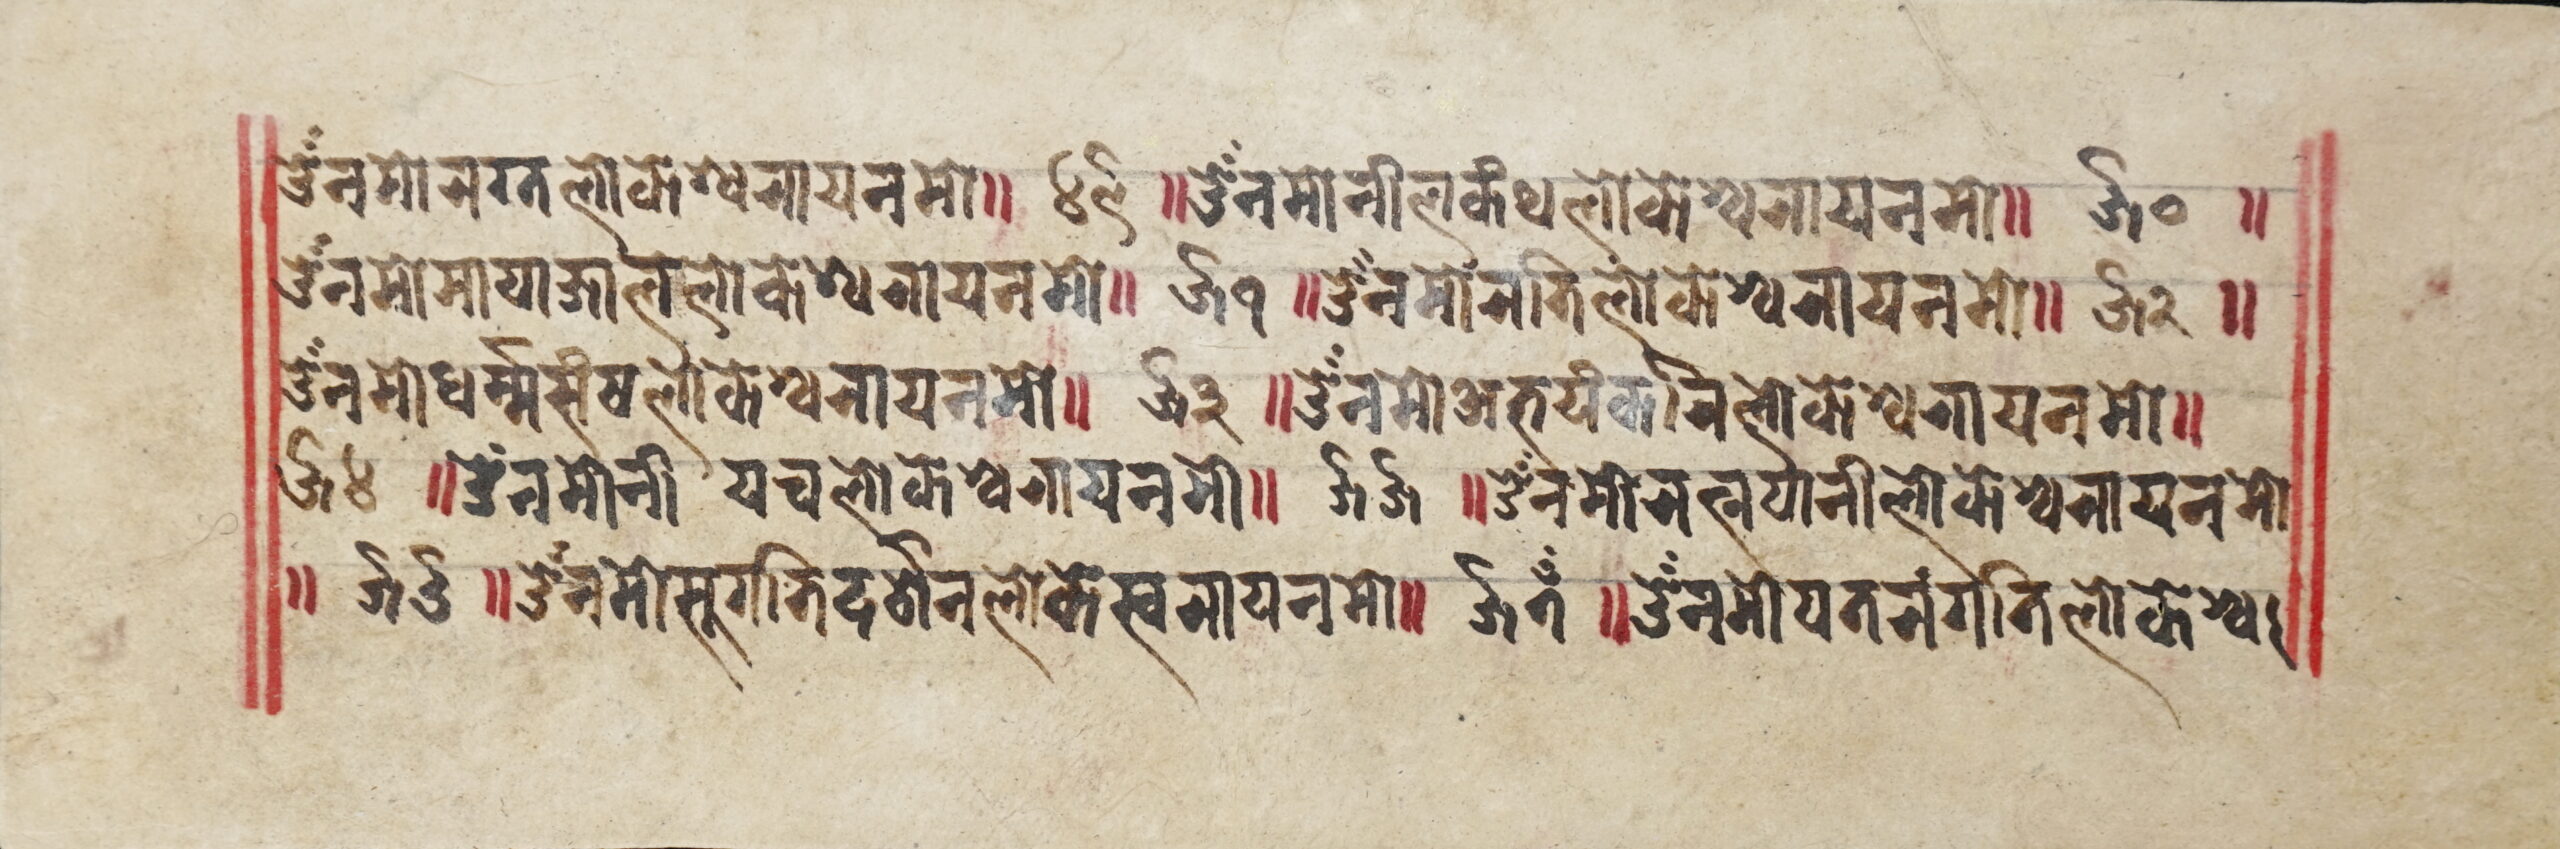 ॐ नमो नग्न लोकेश्वराय नमो॥ ४९ ॥ॐ नमो नीलकंथ लोकेश्वराय नमो॥ ५० ॥
ॐ नमो मायाजाल लोकेश्वराय नमो॥ ५१ ॥ॐ नमो नति लोकेश्वराय नमो॥ ५२ ॥
ॐ नमो धर्म्म लोकेश्वराय नमो॥ ५३ ॥ॐ नमो अभयंकरि लोकेश्वराय नमो॥
५४ ॥ॐ नमो नी यच लोकेश्वराय नमो॥ ५५ ॥ॐ नमो रत्नपानी लोकेश्वराय नमो
॥ ५६ ॥ॐ नमो सुगतिदर्शन लोकेस्वराय नमो॥ ५७ ॥ॐ नमो लोकेश्व